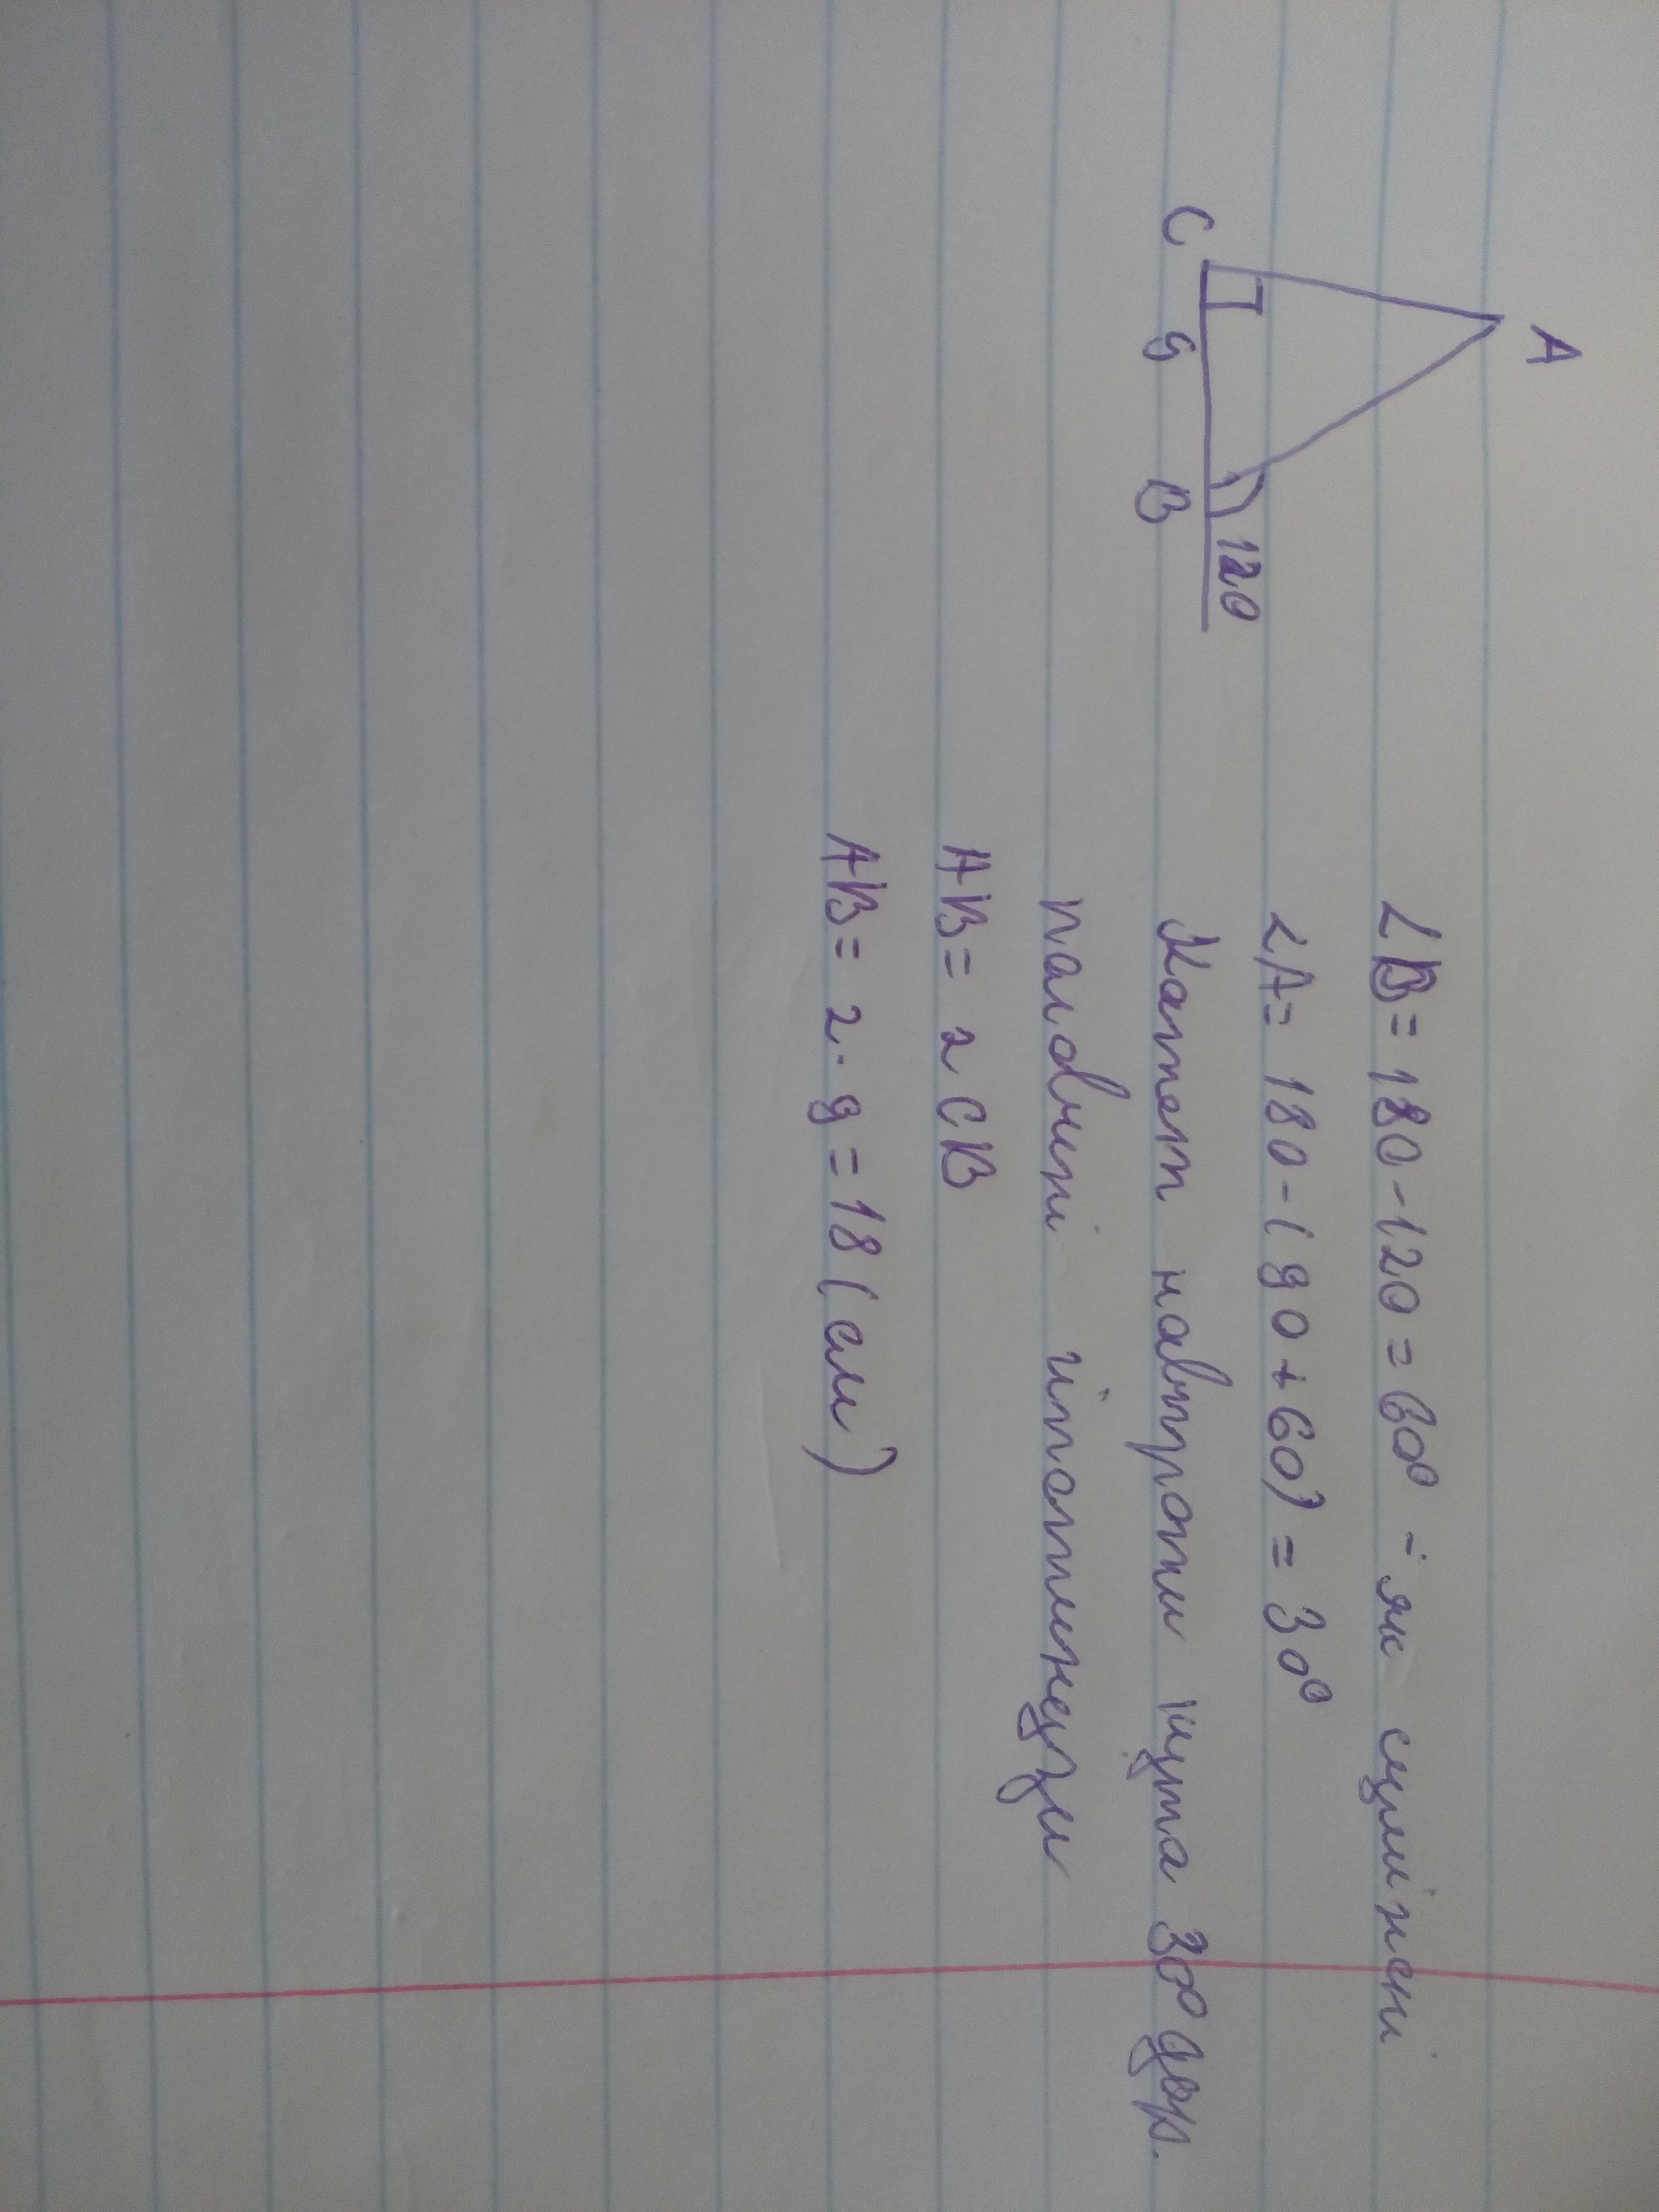 A
C
9
B
120
∠B = 180 - 120 = 60° - як суміжні
∠A = 180 - (90 + 60) = 30°
Катет навпроти кута 30° дорі.
половині гіпотинузи
AB = 2 CB
AB = 2 · 9 = 18 (см)